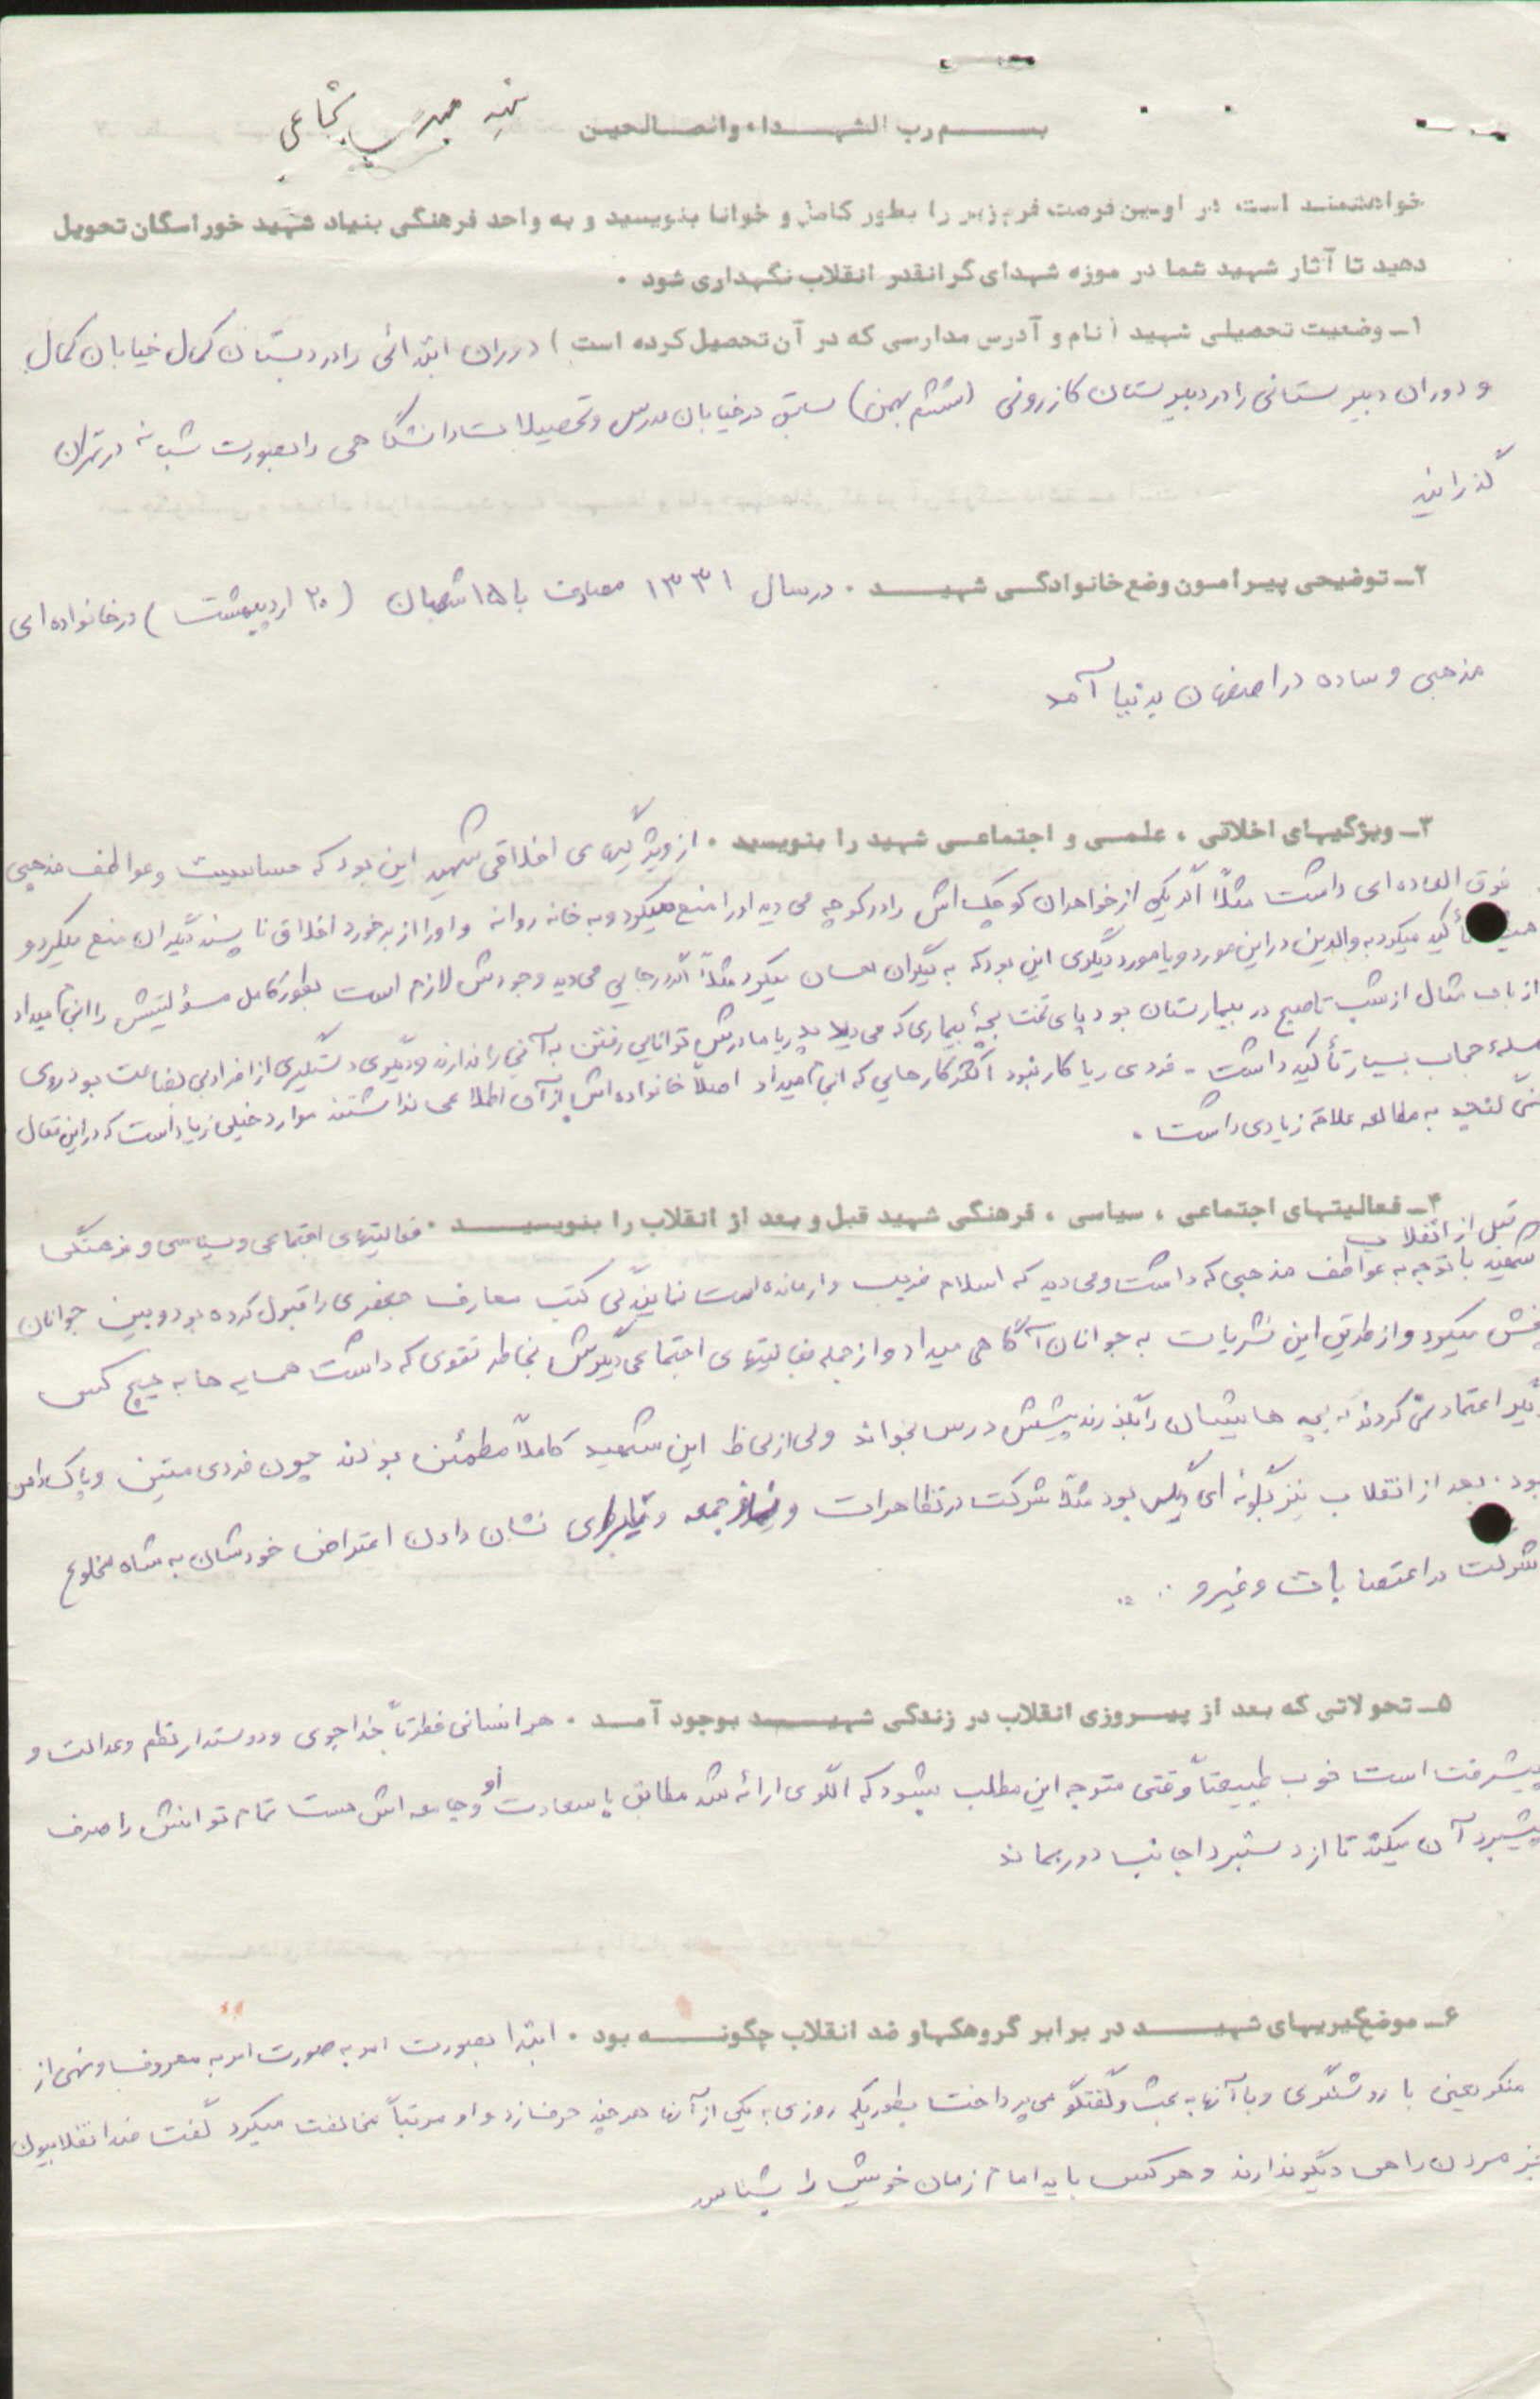 بسم رب الشهداء والصالحین
شهید شجاعی
خواهشمند است در اولین فرصت فرم زیر را بطور کامل و خوانا بنویسید و به واحد فرهنگی بنیاد شهید خوراسگان تحویل
دهید تا آثار شهید شما در موزه شهدای گرانقدر انقلاب نگهداری شود .
۱ـ وضعیت تحصیلی شهید ( نام و آدرس مدارسی که در آن تحصیل کرده است ) دوران ابتدائی را در دبستان کمال خیابان کمال
و دوران دبیرستانی را در دبیرستان کازرونی (ششم بهمن) سابق در خیابان مدرس و تحصیلات دانشگاهی را بصورت شبانه در تهران
گذرانید
۲ـ توضیحی پیرامون وضع خانوادگی شهید . در سال ۱۳۳۱ مصادف با ۱۵ شعبان (۲۰ اردیبهشت) در خانواده ای
مذهبی و ساده در اصفهان بدنیا آمد
۳ـ ویژگیهای اخلاقی ، علمی و اجتماعی شهید را بنویسید . از ویژگیهای اخلاقی شهید این بود که حساسیت و عواطف مذهبی
فوق العاده ای داشت مثلاً اگر یکی از خواهران کوچک اش را در کوچه می دید او را منع میکرد و به خانه روانه و او را از برخورد اخلاق ناپسند دیگران منع میکرد و
تأکید میکرد به والدین در این مورد و یا مورد دیگری این بود که به دیگران احسان میکرد مثلاً اگر در جایی می دید وجودش لازم است بطور کامل مسؤلیتش را انجام میداد
از باب مثال از شب تا صبح در بیمارستان بود پای تخت بچۀ بیماری که می دید پدر یا مادرش توانایی رفتن به آنجا را ندارند و دیگری دستگیری از افراد بی بضاعت بود روی
مسئلۀ حجاب بسیار تأکید داشت - فردی ریا کار نبود اکثر کارهایی که انجام میداد اصلاً خانواده اش از آن اطلاعی نداشتند موارد خیلی زیاد است که در این مقال
نمی گنجد به مطالعه علاقه زیادی داشت .
۴ـ فعالیتهای اجتماعی ، سیاسی ، فرهنگی شهید قبل و بعد از انقلاب را بنویسید . فعالیتهای اجتماعی و سیاسی و فرهنگی
قبل از انقلاب
شهید با توجه به عواطف مذهبی که داشت و می دید که اسلام غریب وارمانده است نمایندگی کتب معارف جعفری را قبول کرده بود و بین جوانان
پخش میکرد و از طریق این نشریات به جوانان آگاهی میداد و از جمله فعالیتهای اجتماعی دیگرش بخاطر تقوی که داشت همسایه ها به هیچ کس
دیگر اعتماد نمی کردند که بچه هایشان را بگذارند پیشش درس بخواند ولی از لحاظ این شهید کاملاً مطمئن بودند چون فردی متین و پاک دامن
بود . بعد از انقلاب نیز بگونه ای دیگر بود مثلاً شرکت در تظاهرات و نماز جمعه و برای نشان دادن اعتراض خودشان به شاه مخلوع
شرکت در اعتصابات و غیره ...
۵ـ تحولاتی که بعد از پیروزی انقلاب در زندگی شهید بوجود آمد . هر انسانی فطرتاً خدا جوی و دوستدار نظم و عدالت و
پیشرفت است خوب طبیعتاً وقتی متوجه این مطلب میشود که الگوی ارائه شد مطابق با سعادت او و جامعه اش هست تمام توانش را صرف
پیشبرد آن میکند تا از دستبرد اجانب دور بماند
۶ـ موضعگیریهای شهید در برابر گروهکها و ضد انقلاب چگونه بود . ابتدا بصورت امر به صورت امر به معروف و نهی از
منکر یعنی با روشنگری و با آنها به بحث و گفتگو می پرداخت بطوریکه روزی به یکی از آنها هر چند حرف زد و او مرتباً مخالفت میکرد گفت ضد انقلابیون
جز مردن راهی دیگر ندارند و هر کس باید امام زمان خویش را بشناسد